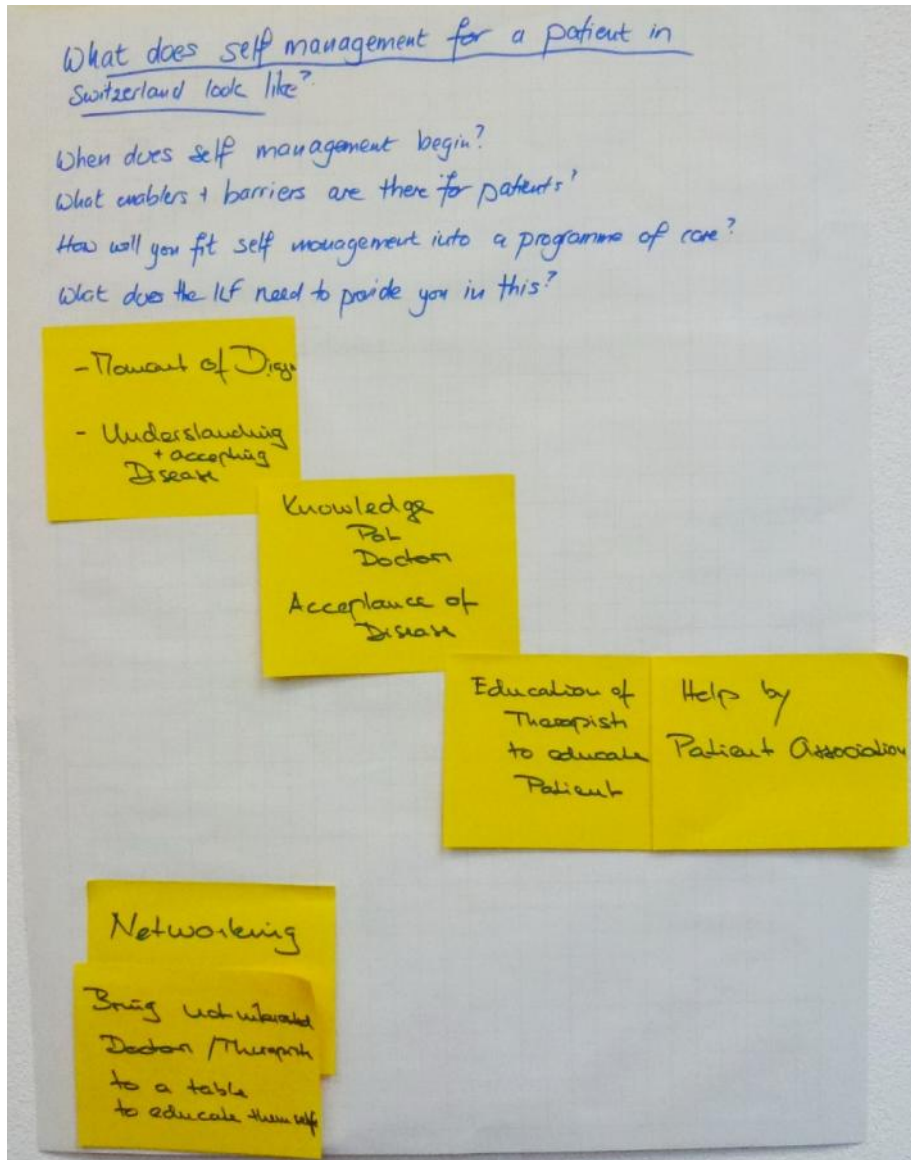 What does self management for a patient in
Switzerland look like?
When does self management begin?
What enablers + barriers are there for patients?
How will you fit self management into a programme of care?
What does the ILF need to provide you in this?
- Moment of Diagn
- Understanding
+ accepting
Disease
Knowledge
Pat
Doctors
Acceptance of
Disease
Education of
Therapists
to educate
Patient
Help by
Patient Association
Networking
Bring not interested
Doctors / Therapists
to a table
to educate themself